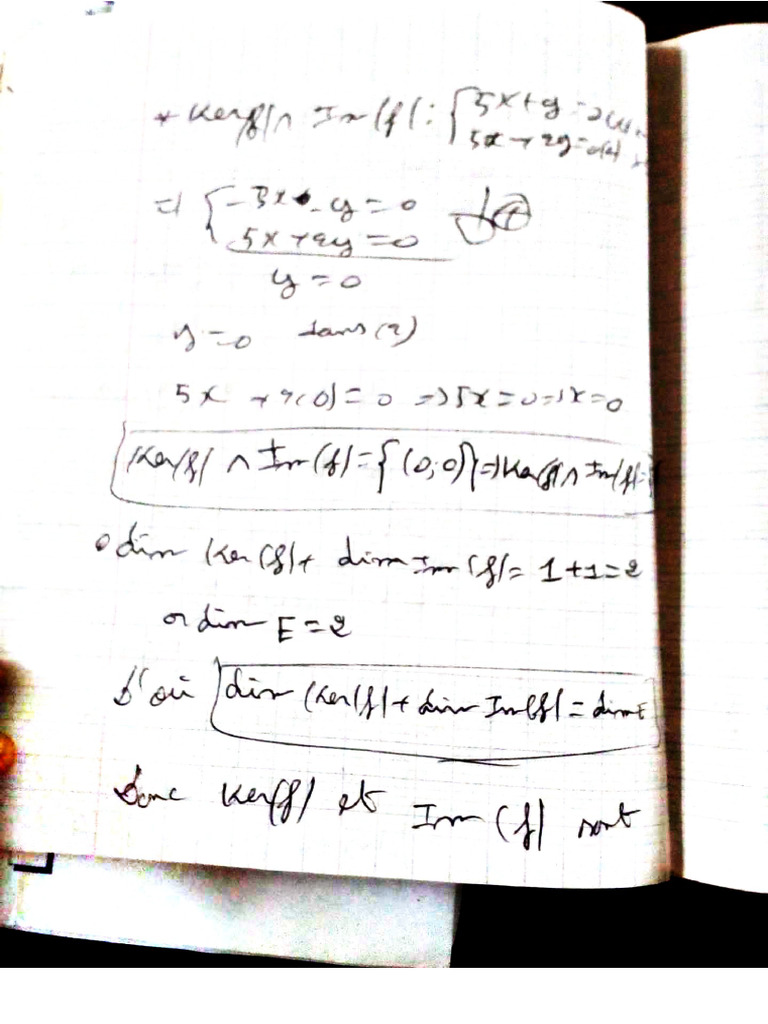 * Kerf ∩ Im(f) : { 5x + y = 0 (1)
5x + 2y = 0 (2)
=> { -5x - y = 0
5x + 2y = 0
y = 0
y = 0 dans (2)
5x + 2(0) = 0 => 5x = 0 => x = 0
Ker(f) ∩ Im(f) = {(0;0)} => Kerf ∩ Im(f) = {
• dim Ker(f) + dim Im(f) = 1+1 = 2
or dim E = 2
D'où dim Ker(f) + dim Im(f) = dim E
Donc Ker(f) et Im(f) sont